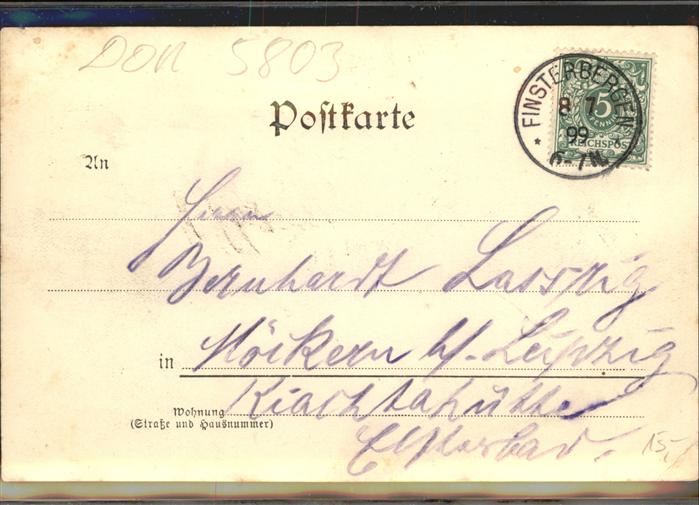 DON 5803
Postkarte
FINSTERBERGEN
8 7
99
6-7N.
5
REICHSPOST
An
Herrn
Bernhardt Lasszig
in Möckern b/. Leipzig
Wohnung
(Straße und Hausnummer)
Kiachtahütte
Elsterbad.
15,-